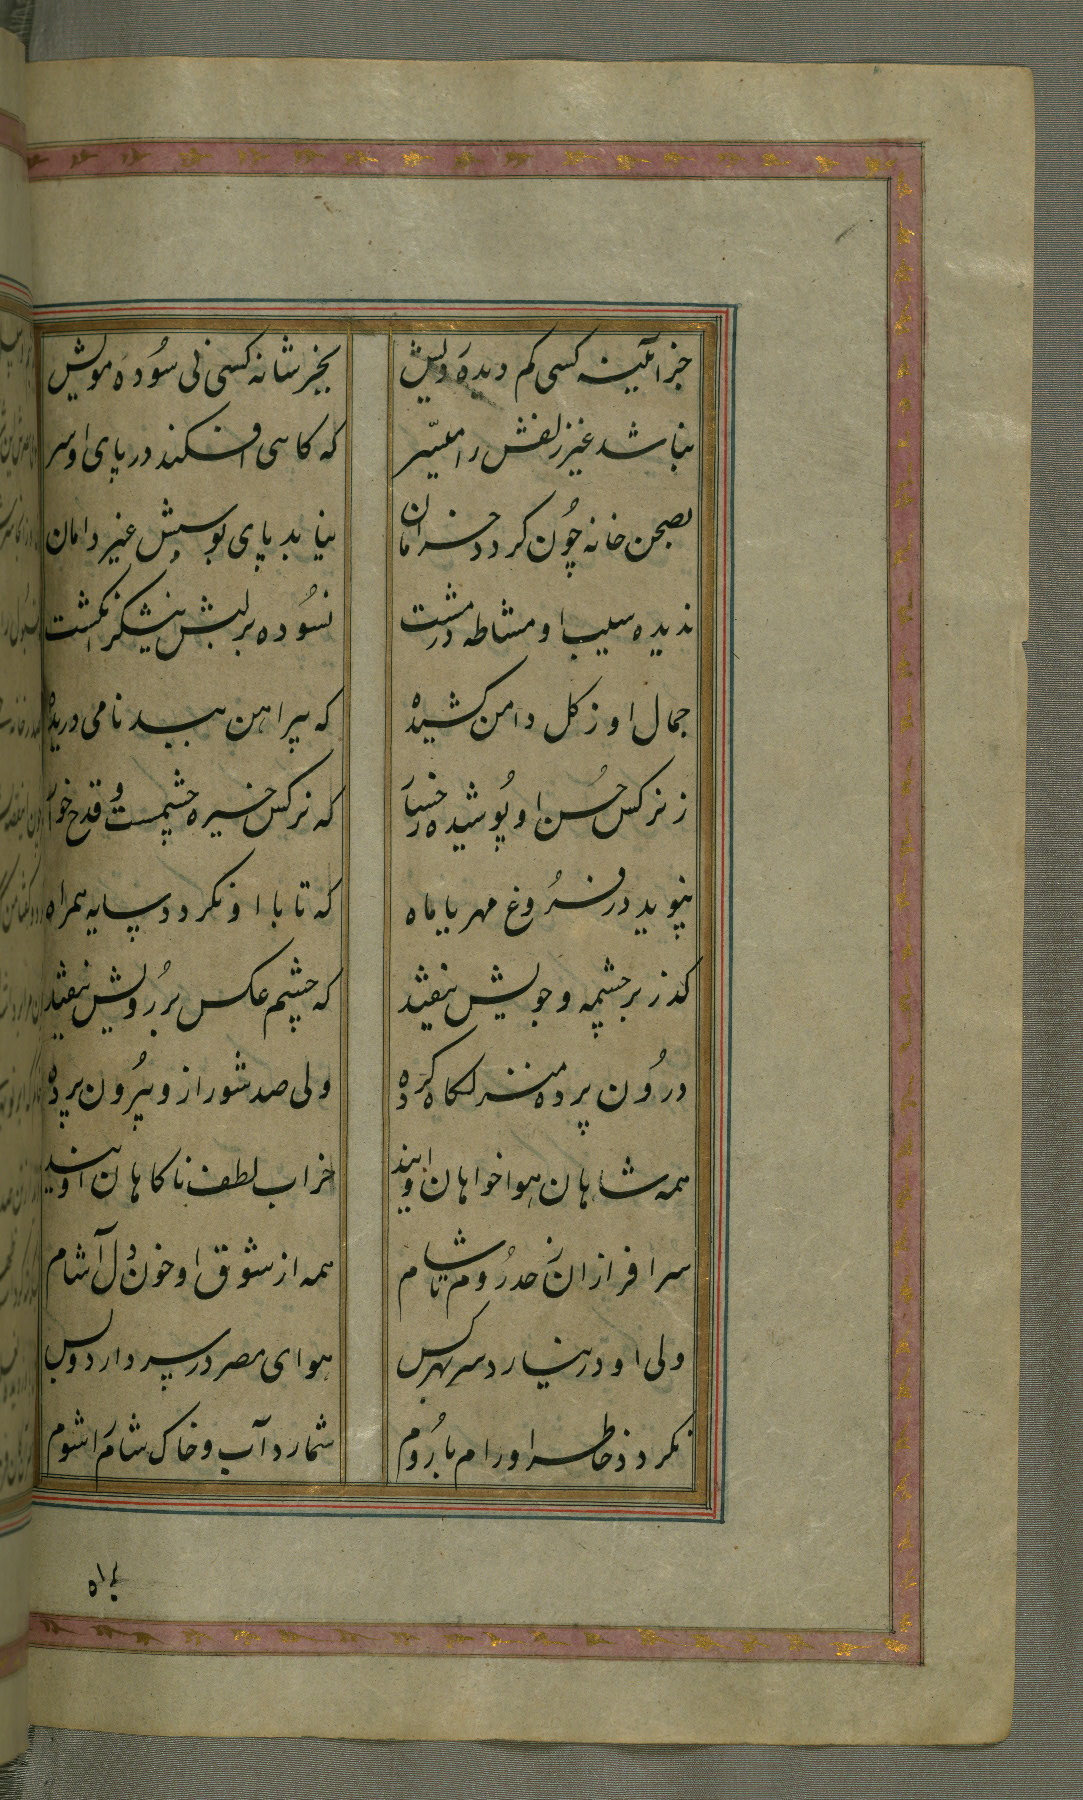 جز آئینه کسی کم دیده رویش بجز شانه کسی نی سوده مویش
نباشد غیر زلفش را میسر که کاهی افکند در پای او سر
بصحن خانه چون کردد خرامان نیابد پای بوسیش غیر دامان
ندیده سیب او مشاطه در مشت نسوده بر لبش نیشکر انکشت
جمال او ز کل دامن کشیده که پیراهن ببد نامی دریده
ز نرکس حسن او پوشیده رخسار که نرکس خیره چشمست و قدح خوار
نپوید در فروغ مهر یا ماه که تا با او نکردد سایه همراه
کذر بر چشمه و جویش نیفتد که چشم عکس بر رویش نیفتد
درون پرده منزلکاه کرده ولی صد شور ازو بیرون پرده
همه شاهان هواخواهان اویند خراب لطف ناکاهان اویند
سرافرازان ز حد روم تا شام همه از شوق او خون دل آشام
ولی او در نیارد سر بهر کس هوای مصر در سر دارد و بس
نکردد خاطر او رام با روم شمارد آب و خاک شام را شوم
براه